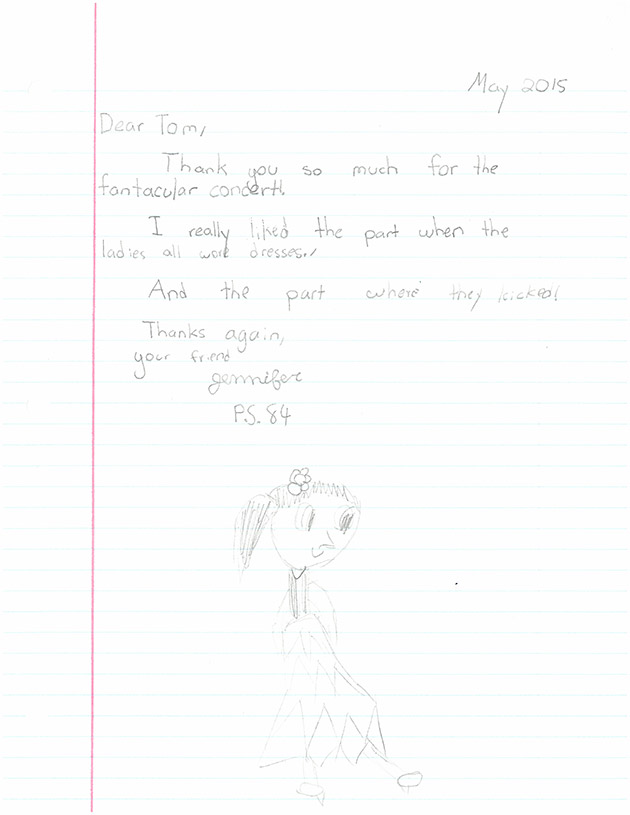 May 2015
Dear Tom,
Thank you so much for the
fantacular condert!.
I really liked the part when the
ladies all wore dresses.
And the part where they kicked!
Thanks again,
your friend
jennifer
P.S. 84